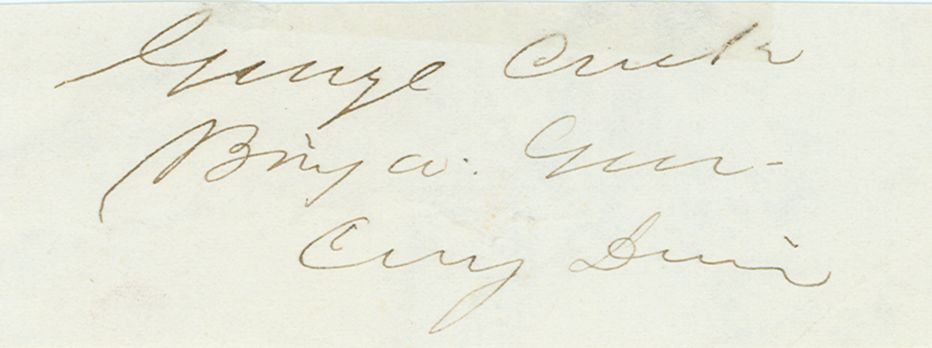 George Crook
Brig. Genl.
Comg Divin